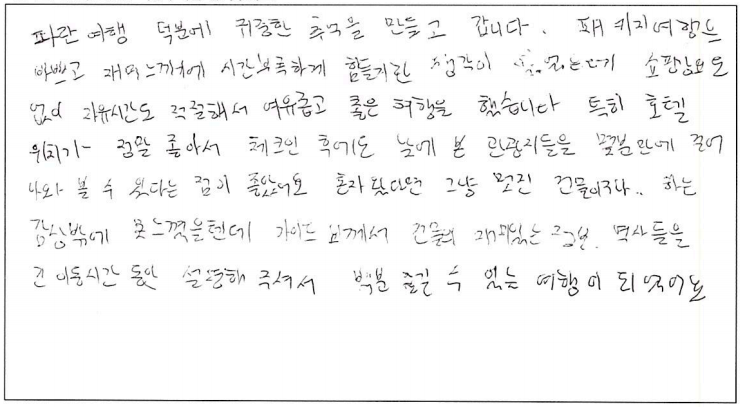 파란여행 덕분에 귀중한 추억을 만들고 갑니다. 패키지여행은
바쁘고 시간부족하게 힘들거란 생각이 있는데 쇼핑강요도
없어 자유시간도 적절해서 여유롭고 좋은 여행을 했습니다 특히 호텔
위치가 정말 좋아서 체크인 후에도 낮에 본 관광지들을 몇분만에 걸어
나와 볼 수 있다는 점이 좋았어요 혼자 왔다면 그냥 멋진 건물이구나.. 하는
감상밖에 못느꼈을텐데 가이드님께서 건물의 재미있는 정보, 역사들을
긴 이동시간 동안 설명해 주셔서 백분 즐길 수 있는 여행이 되었어요